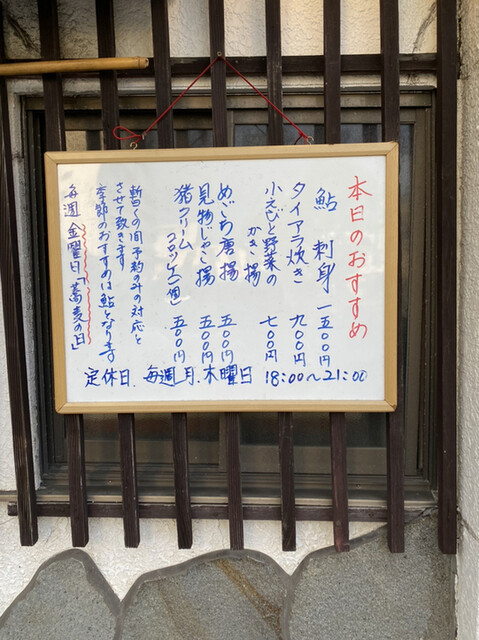 本日のおすすめ
鮎 刺身 一五〇〇円
タイアラ炊き 九〇〇円
小えびと野菜の
かき揚 七〇〇円
めごち唐揚 五〇〇円
見物じゃこ揚 五〇〇円
猪クリーム
コロッケ一個 五〇〇円
暫らくの間予約のみの対応と
させて致きます
季節のおすすめは鮎となります
毎週金曜日「蕎麦の日」
定休日.毎週月.木曜日 18:00〜21:00